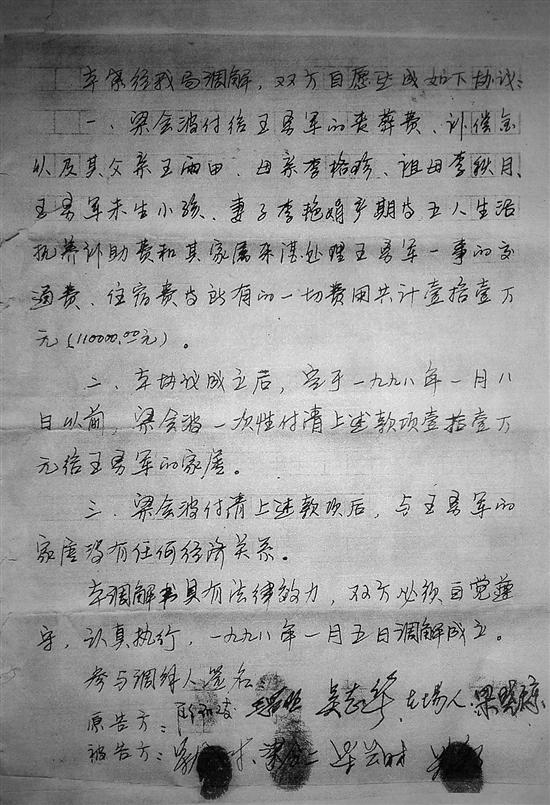 本案经我局调解，双方自愿达成如下协议：
一、梁会波付给王勇军的丧葬费、补偿金
以及其父亲王雨田、母亲李格珍、祖母李秋月、
王勇军未生小孩、妻子李艳娟产期等五人生活
抚养补助费和其家属来湛处理王勇军一事的交
通费、住宿费等所有的一切费用共计壹拾壹万
元（110000.00元）。
二、本协议成立后，定于一九九八年一月八
日以前，梁会波一次性付清上述款项壹拾壹万
元给王勇军的家属。
三、梁会波付清上述款项后，与王勇军的
家属没有任何经济关系。
本调解书具有法律效力，双方必须自觉遵
守，认真执行，一九九八年一月五日调解成立。
参与调解人签名
原告方： 吴志华 在场人
被告方：